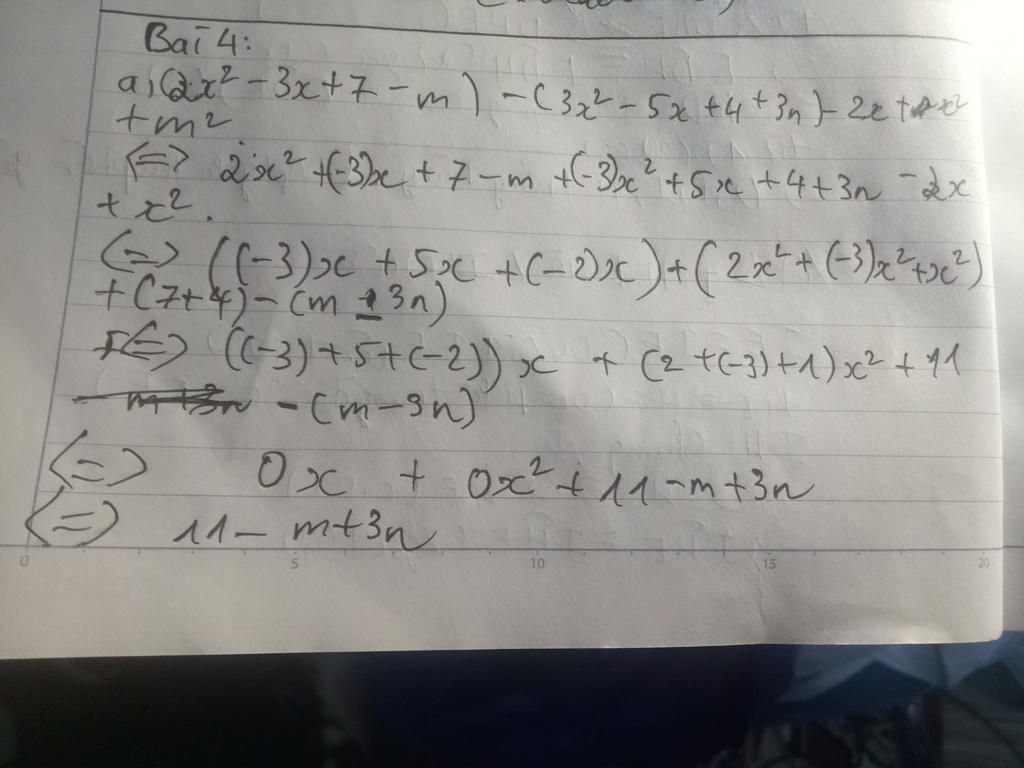 Bài 4:
a, (2x² - 3x + 7 - m) - (3x² - 5x + 4 + 3n) - 2x + x²
+ m²
<=> 2x² + (-3)x + 7 - m + (-3)x² + 5x + 4 + 3n - 2x
+ x².
<=> ((-3)x + 5x + (-2)x) + (2x² + (-3)x² + x²)
+ (7+4) - (m - 3n)
<=> ((-3) + 5 + (-2)) x + (2 + (-3) + 1)x² + 11
- (m - 3n)
<=> 0x + 0x² + 11 - m + 3n
<=> 11 - m + 3n
0 5 10 15 20